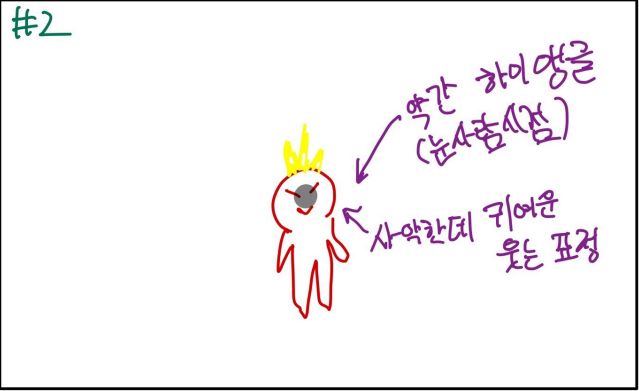 #2
약간 하이앵글
(눈사람시점)
사악한데 귀여운
웃는 표정